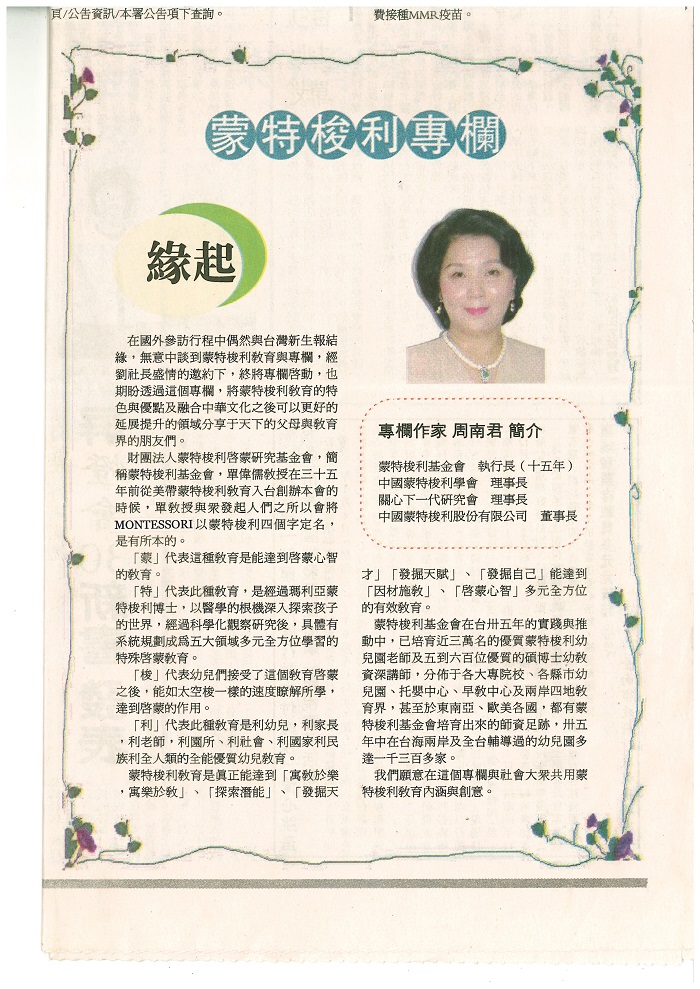 頁/公告資訊/本署公告項下查詢。
費接種MMR疫苗。
蒙特梭利專欄
緣起
在國外參訪行程中偶然與台灣新生報結
緣，無意中談到蒙特梭利教育與專欄，經
劉社長盛情的邀約下，終將專欄啓動，也
期盼透過這個專欄，將蒙特梭利敎育的特
色與優點及融合中華文化之後可以更好的
延展提升的領域分享于天下的父母與敎育
界的朋友們。
財團法人蒙特梭利啓蒙硏究基金會，簡
稱蒙特梭利基金會，單偉儒敎授在三十五
年前從美帶蒙特梭利敎育入台創辦本會的
時候，單敎授與衆發起人們之所以會將
MONTESSORI以蒙特梭利四個字定名，
是有所本的。
「蒙」代表這種敎育是能達到啓蒙心智
的敎育。
「特」代表此種敎育，是經過瑪利亞蒙
特梭利博士，以醫學的根機深入探索孩子
的世界，經過科學化觀察硏究後，具體有
系統規劃成爲五大領域多元全方位學習的
特殊啓蒙敎育。
「梭」代表幼兒們接受了這個敎育啓蒙
之後，能如太空梭一樣的速度瞭解所學，
達到啓蒙的作用。
「利」代表此種敎育是利幼兒，利家長
，利老師，利園所、利社會、利國家利民
族利全人類的全能優質幼兒敎育。
蒙特梭利敎育是眞正能達到「寓敎於樂
，寓樂於敎」、「探索潛能」、「發掘天
專欄作家 周南君 簡介
蒙特梭利基金會 執行長（十五年）
中國蒙特梭利學會 理事長
關心下一代硏究會 理事長
中國蒙特梭利股份有限公司 董事長
才」「發掘天賦」、「發掘自己」能達到
「因材施敎」、「啓蒙心智」多元全方位
的有效敎育。
蒙特梭利基金會在台卅五年的實踐與推
動中，已培育近三萬名的優質蒙特梭利幼
兒園老師及五到六百位優質的碩博士幼敎
資深講師，分佈于各大專院校、各縣市幼
兒園、托嬰中心、早敎中心及兩岸四地敎
育界，甚至於東南亞、歐美各國，都有蒙
特梭利基金會培育出來的師資足跡，卅五
年中在台海兩岸及全台輔導過的幼兒園多
達一千三百多家。
我們願意在這個專欄與社會大衆共用蒙
特梭利敎育內涵與創意。